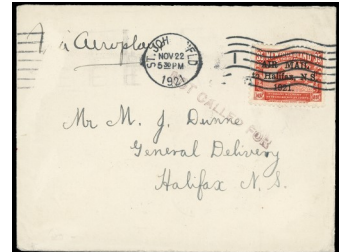 Aeroplane
ST. JOH
NFLD
NOV 22
5 30 PM
1921
AIR MAIL
to Halifax, N.S.
1921
CALLED FOR
Mr M. J. Dunne
General Delivery
Halifax N. S.